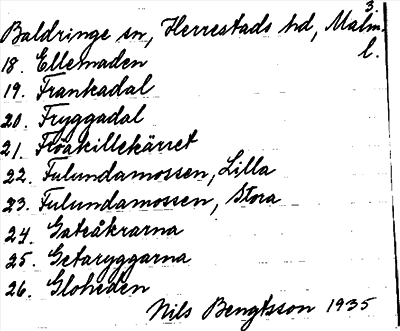 3.
Baldringe sn, Herrestads hd, Malm. l.
18. Ellemaden
19. Frankadal
20. Fryggadal
21. Fröakillekärret
22. Fulundamossen, Lilla
23. Fulundamossen, Stora
24. Gateåkrarna
25. Getaryggarna
26. Gloheden
Nils Bengtsson 1935